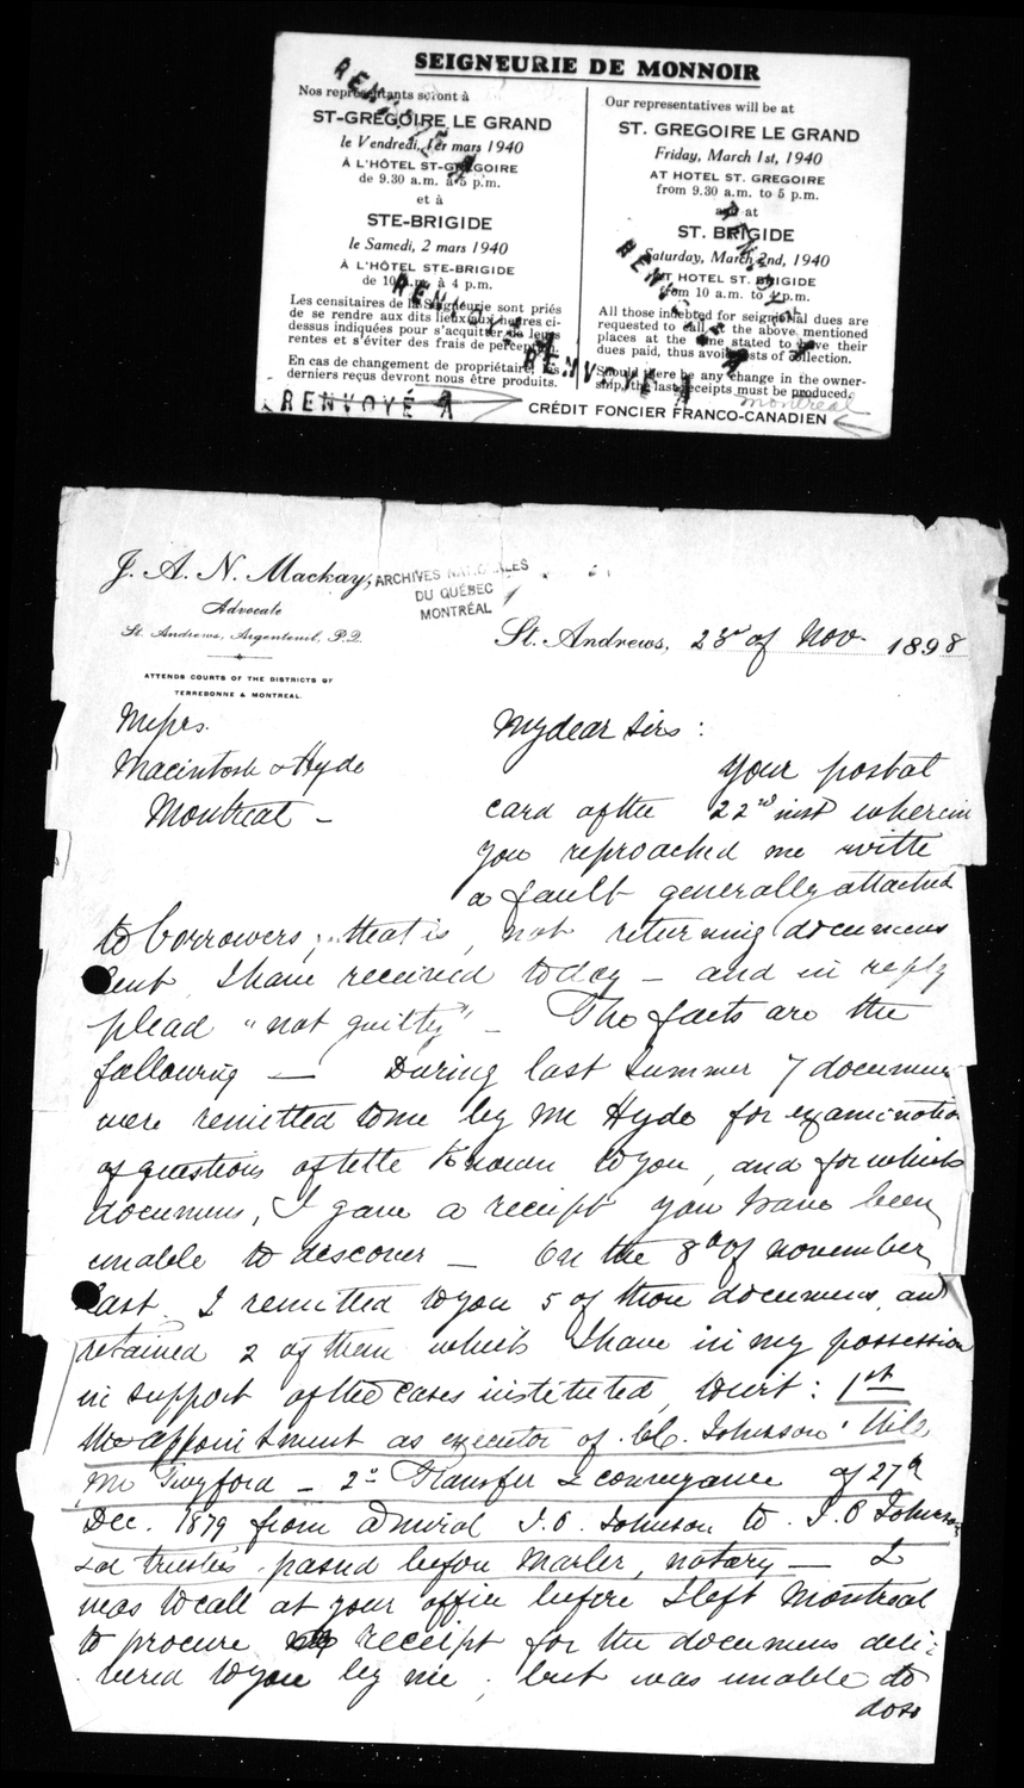 SEIGNEURIE DE MONNOIR
Nos représentants seront à
ST-GREGOIRE LE GRAND
le Vendredi, 1er mars 1940
À L'HÔTEL ST-GREGOIRE
de 9.30 a.m. à 5 p.m.
et à
STE-BRIGIDE
le Samedi, 2 mars 1940
À L'HÔTEL STE-BRIGIDE
de 10 a.m. à 4 p.m.
Les censitaires de la Seigneurie sont priés
de se rendre aux dits lieux aux heures ci-
dessus indiquées pour s'acquitter de leurs
rentes et s'éviter des frais de perception.
En cas de changement de propriétaire, les
derniers reçus devront nous être produits.
Our representatives will be at
ST. GREGOIRE LE GRAND
Friday, March 1st, 1940
AT HOTEL ST. GREGOIRE
from 9.30 a.m. to 5 p.m.
and at
ST. BRIGIDE
Saturday, March 2nd, 1940
AT HOTEL ST. BRIGIDE
from 10 a.m. to 4 p.m.
All those indebted for seignorial dues are
requested to call at the above mentioned
places at the time stated to have their
dues paid, thus avoid costs of collection.
Should there be any change in the owner-
ship, the last receipts must be produced.
montreal
CRÉDIT FONCIER FRANCO-CANADIEN
RENVOYÉ A
RENVOYÉ A
RENVOYÉ A
RENVOYÉ A
RENVOYÉ A
RENVOYÉ A
J. A. N. Mackay,
Advocate
St. Andrews, Argenteuil, P.Q.
ATTENDS COURTS OF THE DISTRICTS OF
TERREBONNE & MONTREAL.
ARCHIVES NATIONALES
DU QUÉBEC
MONTRÉAL
St. Andrews, 23rd of Nov. 1898
Messrs.
Macintosh & Hyde
Montreal -
My dear Sirs:
Your postal
card of the 22nd inst wherein
you reproached me with
a fault generally attached
to borrowers, that is, not returning documens
lent, I have received today - and in reply
plead "not guilty" - The facts are the
following - During last summer 7 documens
were remitted to me by Mr Hyde for examination
of questions of title known to you, and for which
documens, I gave a receipt you have been
unable to discover - On the 8th of November
last, I remitted to you 5 of those documens, and
retained 2 of them which I have in my possession
in support of the cases instituted, to wit: 1st
The appointment as executor of Johnson' Will,
Mr Twyford - 2º Transfer & conveyance of 27th
Dec. 1879 from Admiral J.O. Johnson to J.O Johnson
& al trustees passed before Marler, notary - I
was to call at your office before I left Montreal
to procure receipt for the documens deli-
vered to you by me, but was unable to
do so